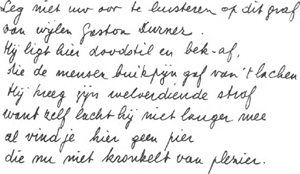 Leg niet uw oor te luisteren op dit graf
van wijlen Gaston Durner.
Hij ligt hier doodstil en bek-af,
die de mensen buikpijn gaf van 't lachen
Hij kreeg zijn welverdiende straf
want zelf lacht hij niet langer mee
al vind je hier geen pier
die nu niet kronkelt van plezier.